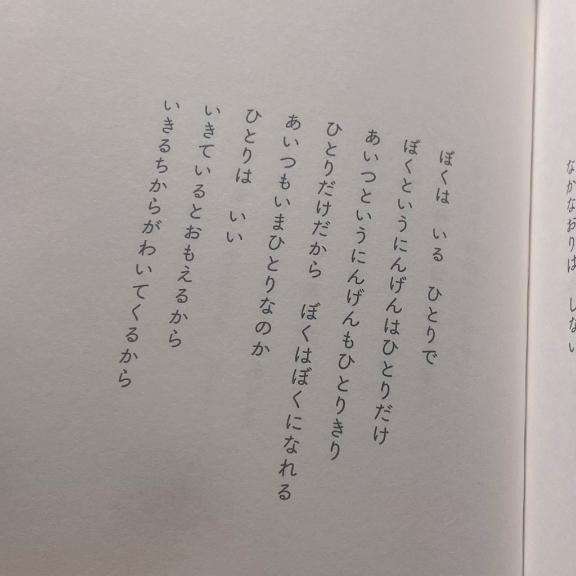 なかなおりは　しない
ぼくは　いる　ひとりで
ぼくというにんげんはひとりだけ
あいつというにんげんもひとりきり
ひとりだけだから　ぼくはぼくになれる
あいつもいまひとりなのか
ひとりは　いい
いきているとおもえるから
いきるちからがわいてくるから